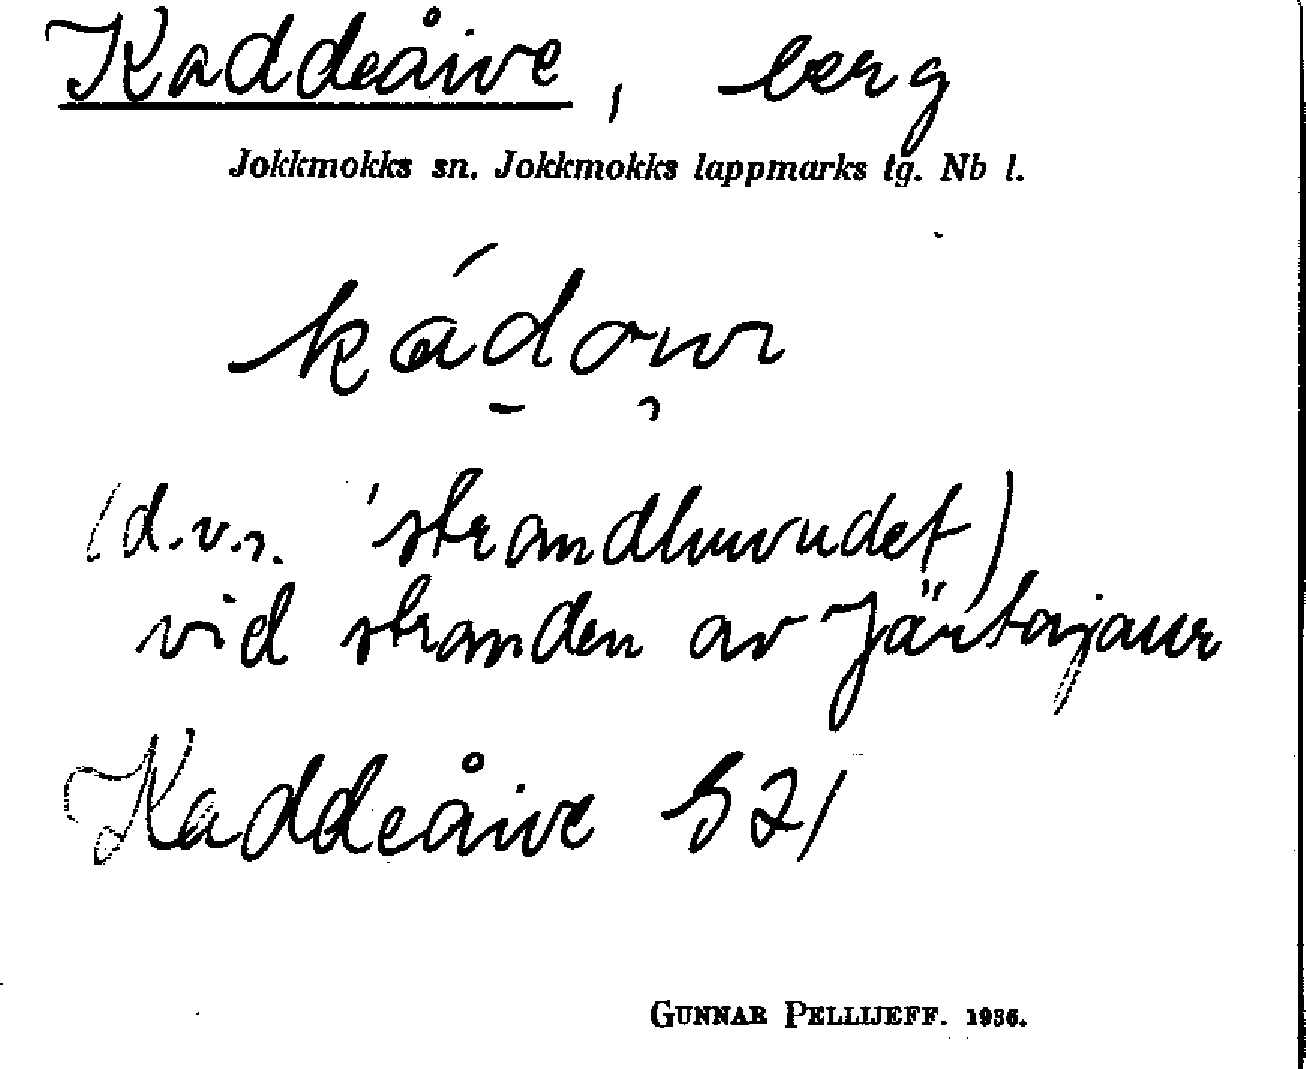 Kaddeåive, berg
Jokkmokks sn. Jokkmokks lappmarks tg. Nb l.
(d.v.s. 'strandhuvudet)
vid stranden av Järtajaur
Kaddeåive S 21
GUNNAR PELLIJEFF. 1936.